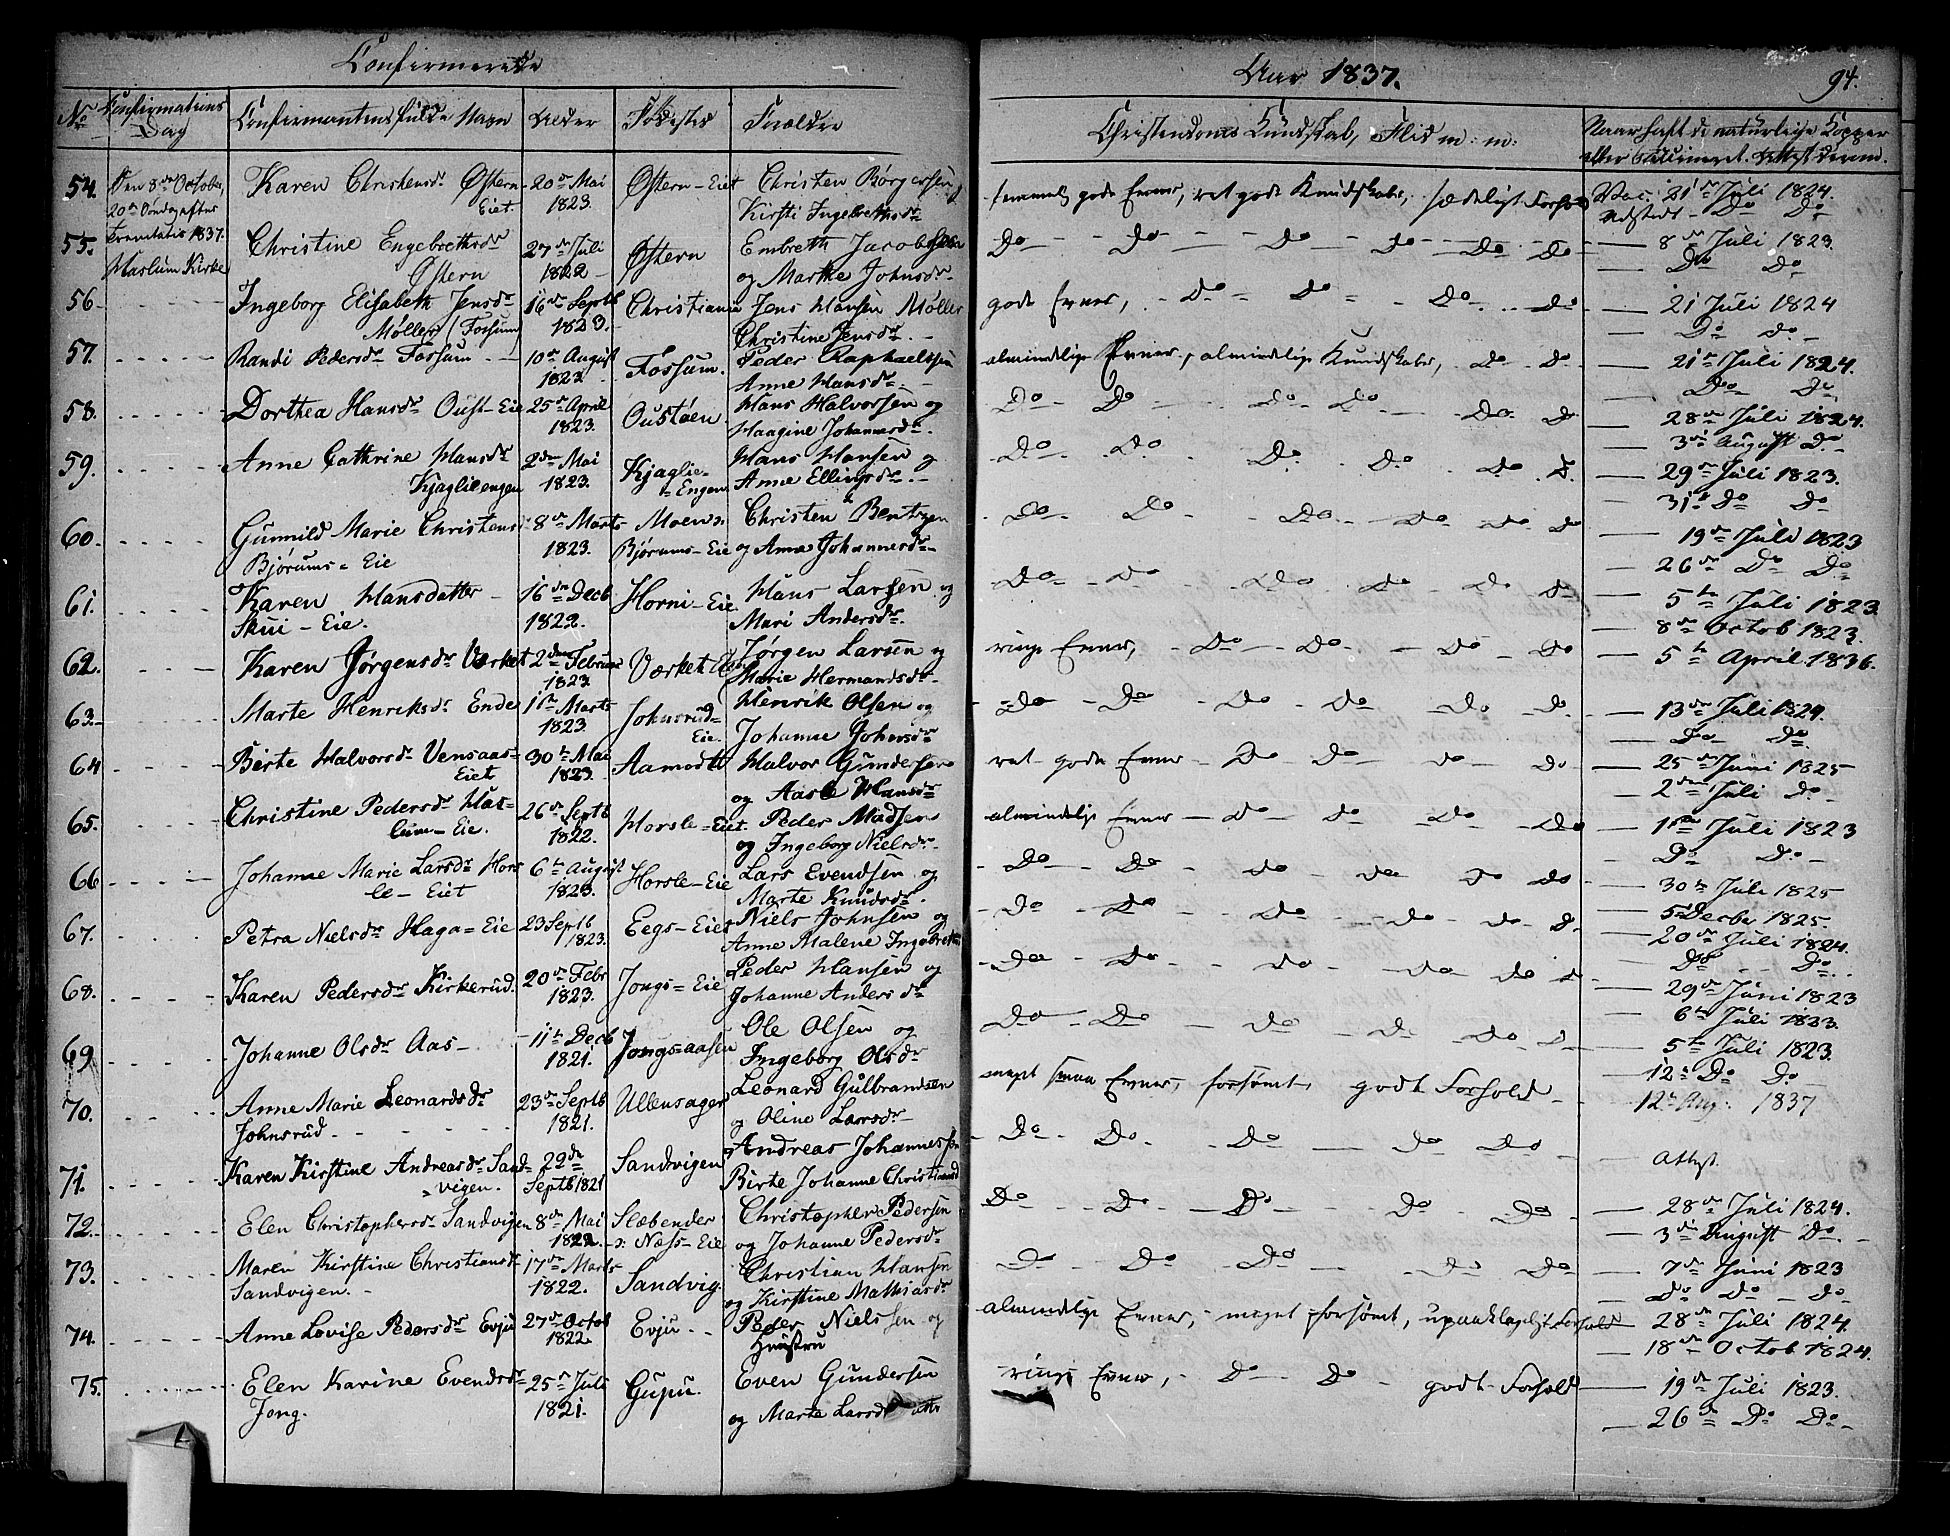 Confirmerede
Aar 1837.
94.
No Confirmations Dag
Confirmantens fulde Navn
Alder
Fødested
Forældre
Christendoms Kundskab, Flid m: m:
Naar haft de naturlige Kopper
eller vaccineret. Attest derom.
54. Den 8de October, 20de Søndag efter Trinitatis 1837. Haslum Kirke
Karen Christensdr Østern Eiet. 20de Mai 1823. Østern-Eiet Christen Børgersen Kirsti Ingebrethsdr
gode Evner, ret gode Kundskaber, sædeligt Forhold Vac. 21de Juli 1824. Udstedt Do Do
55. Christine Engebrethsdr Østern 27de Juli 1822 Østern Embreth Jacobsen og Marthe Johnsdr
Do Do Do Do Do Do 8de Juli 1823. Do Do
56. Ingeborg Elisabeth Jensdr Møller (Fossum) 16de Septb 1823. Christiania Jens Hansen Møller Christine Jensdr.
gode Evner, Do Do Do Do 21 Juli 1824 Do do.
57. Randi Pedersdr Fossum. 10de August 1823 Fossum. Peder Raphaelsen Anne Hansdr.
almindelige Evner, almindelige Kundskaber, do Do 21de Juli 1824. Do Do
58. Dorthea Hansdr Oust-Eie 25de April 1823. Oustøen Hans Halvorsen og Haagine Johannesdr.
Do Do Do Do Do D 28de Juli 1824. 3de August Do.
59. Anne Cathrine Hansdr Kjaglieengen 2den Mai 1823. Kjaglie-Engen Hans Hansen og Anne Ellingsdr.
Do Do. Do. Do. Do D. 29de Juli 1823. 31te Do Do
60. Gunnild Marie Christensd Bjørums-Eie 8de Marts 1823. Moens: Bjørums-Eie Christen Bentzen og Anne Johannesdr
Do Do Do Do Do Do 19de Juli 1823 26de Do Do
61. Karen Hansdatter Skui-Eie. 16de Decb 1822. Horni-Eie Hans Larsen og Mari Andersdr.
Do Do Do Do Do Do 5te Juli 1823. 8de Octob 1823.
62. Karen Jørgensdr Værket 2den Februar 1823. Værket Jørgen Larsen og Marie Hermandsdr
ringe Evner, Do Do Do Do 5te April 1836.
63. Marte Henriksdr Ende 1ste Marts 1823. Johnsrud-Eie. Henrik Olsen og Johanne Johnsdr
Do Do Do Do Do Do 13de Juli 1824. Do Do
64 Birte Halvorsdr Vensaas-Eiet 30te Mai 1823. Aamodt Halvor Gundersen og Aasle Hansdr
ret gode Evner Do Do do Do 25de Juni 1825 2den Juli Do
65. Christine Pedersdr Haslum-Eie. 26de Septb 1822. Horsle-Eiet. Peder Madsen og Ingeborg Nielsdr
almindelige Evner Do Do Do Do 1ste Juli 1823 Do Do
66 Johanne Marie Larsdr Horsle-Eiet 6te August 1823. Horsle-Eie Lars Evendsen og Marte Knudsdr.
Do Do Do Do Do Do 30te Juli 1825 5 Decbr 1825.
67. Petra Nielsdr Haga-Eie 23 Septb 1823. Eegs-Eiet Niels Johnsen og Anne Malene Ingebretsd
Do Do Do Do Do D. 20de Juli 1824. Do Do.
68. Karen Pedersdr Kirkerud. 20de Febr 1823. Jongs-Eie Peder Hansen og Johanne Andersdr
Do Do Do Do Do D 29de Juni 1823 6te Juli 1823.
69 Johanne Olsdr Aas 11te Decb 1821. Jongsaasen Ole Olsen og Ingeborg Olsdr
Do Do Do D Do D 5te Juli 1823. 12te Do Do
70. Anne Marie Leonardsdr Johnsrud. 23de Septb 1821. Ullensager Leonard Gulbrandsen og Oline Larsdr
meget smaa Evner, forsømt, godt Forhold 12te Aug. 1837
71. Karen Kirstine Andreasdr Sandvigen. 22de Septb 1821 Sandvigen Andreas Johannesen Birte Johanne Christiansd
Do Do Do Do Do Attest.
72. Elen Christophersdr Sandvigen 8de Mai 1822. Slæbender Næss-Eie Christopher Pedersen og Johanne Pedersdr
Do Do Do Do Do 28de Juli 1824. 3de August Do.
73. Maren Kirstine Christiansd Sandvigen. 17de Marts 1822. Sandvig. Christian Hansen og Kirstine Mathiasdr
Do Do Do Do Do 7de Juni 1823 Do Do Do
74. Anne Lovise Pedersdr Evju 27de Octob 1822. Evju Peder Nielsen og Hustru
almindelige Evner, meget forsømt, upaaklageligt Forhold 28de Juli 1824. 18de Octob 1824.
75. Elen Karine Evendsdr Jong. 25de Juli 1821. Gupu. Even Gundersen og Marte Larsdatter
ringe Evner, Do Do godt Forhold 19de Juli 1823. 26de Do Do